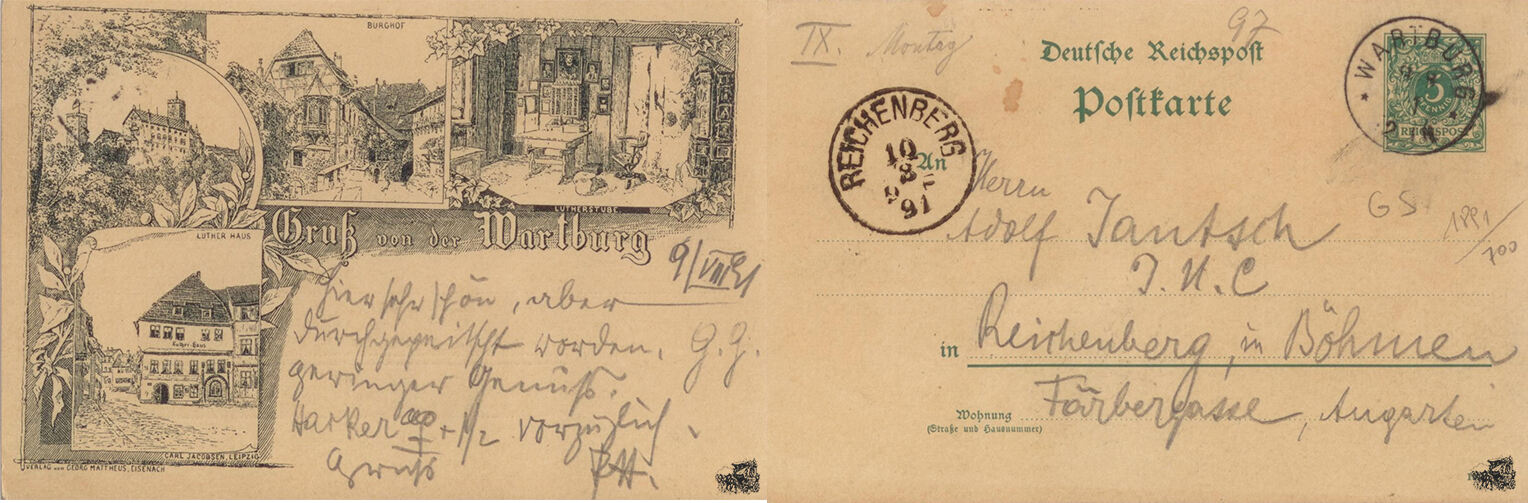 BURGHOF
LUTHERSTUBE
LUTHER HAUS
Gruß von der Wartburg
9/VIII 91
Hier sehr schön, aber
durchgepeitscht worden. G. G.
geringer Genuß.
vorzüglich.
Gruß
Luther-Haus
CARL JACOBSEN, LEIPZIG
VERLAG von GEORG MATTHEUS, EISENACH
IX. Montag
97
Deutsche Reichspost
Postkarte
WARTBURG
5
REICHSPOST
REICHENBERG
10
8
91
An Herrn
Adolf Jantsch
J. N. C
GS
1891/700
in Reichenberg, in Böhmen
Färbergasse, Augarten
Wohnung
(Straße und Hausnummer)